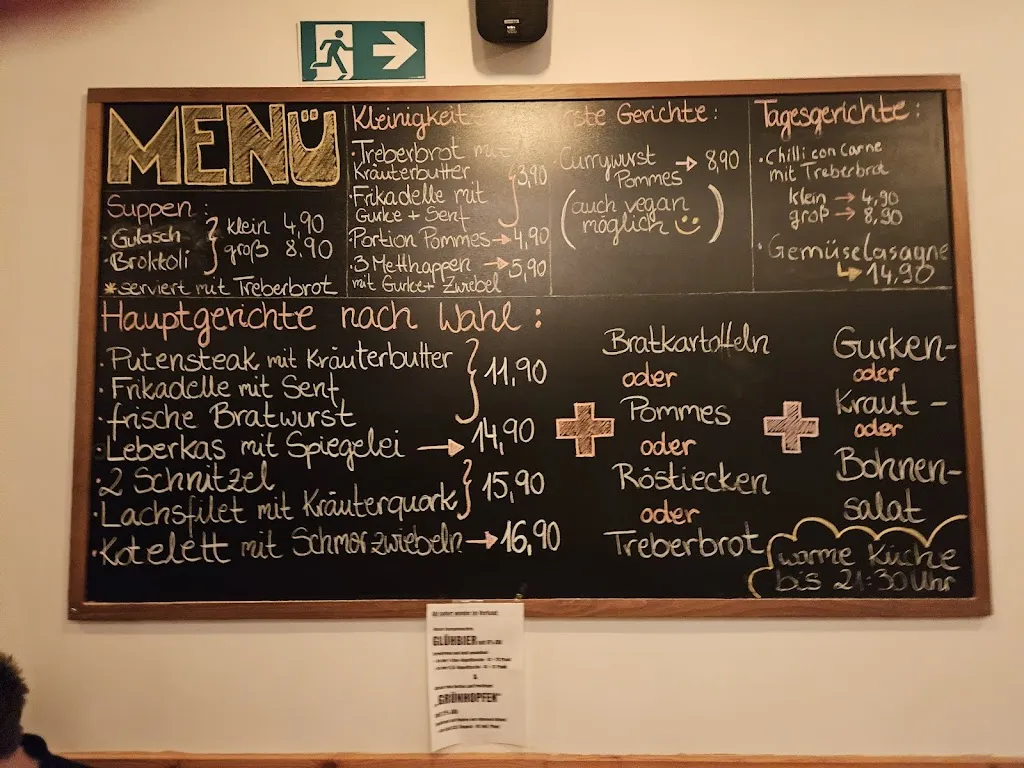 MENÜ
Suppen:
· Gulasch
· Brokkoli
klein 4,90
groß 8.90
*serviert mit Treberbrot
Kleinigkeit
· Treberbrot mit
Kräuterbutter
Frikadelle mit
Gurke + Senf
3,90
· Portion Pommes → 4,90
· 3 Metthappen → 5,90
mit Gurke + Zwiebel
Gerichte:
Currywurst → 8,90
Pommes
(auch vegan
möglich)
Tagesgerichte:
· Chilli con Carne
mit Treberbrot
klein → 4,90
groß → 8,90
· Gemüselasagne
14,90
Hauptgerichte nach Wahl:
· Putensteak mit Kräuterbutter
· Frikadelle mit Senf
· frische Bratwurst
11,90
· Leberkas mit Spiegelei → 14,90
· 2 Schnitzel
· Lachsfilet mit Kräuterquark
15,90
· Kotelett mit Schmorzwiebeln → 16,90
+
Bratkartoffeln
oder
Pommes
oder
Röstiecken
oder
Treberbrot
+
Gurken-
oder
Kraut-
oder
Bohnen-
salat
warme Küche
bis 21:30 Uhr
GLÜHBIER
&
„GRÜNHOPFEN"